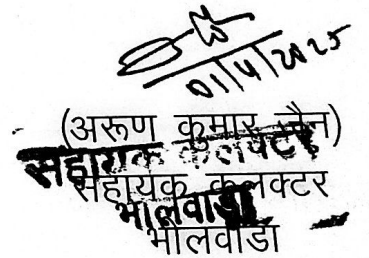 01/4/2025
(अरूण कुमार जैन)
सहायक कलक्टर
सहायक कलक्टर
भीलवाडा
भीलवाडा